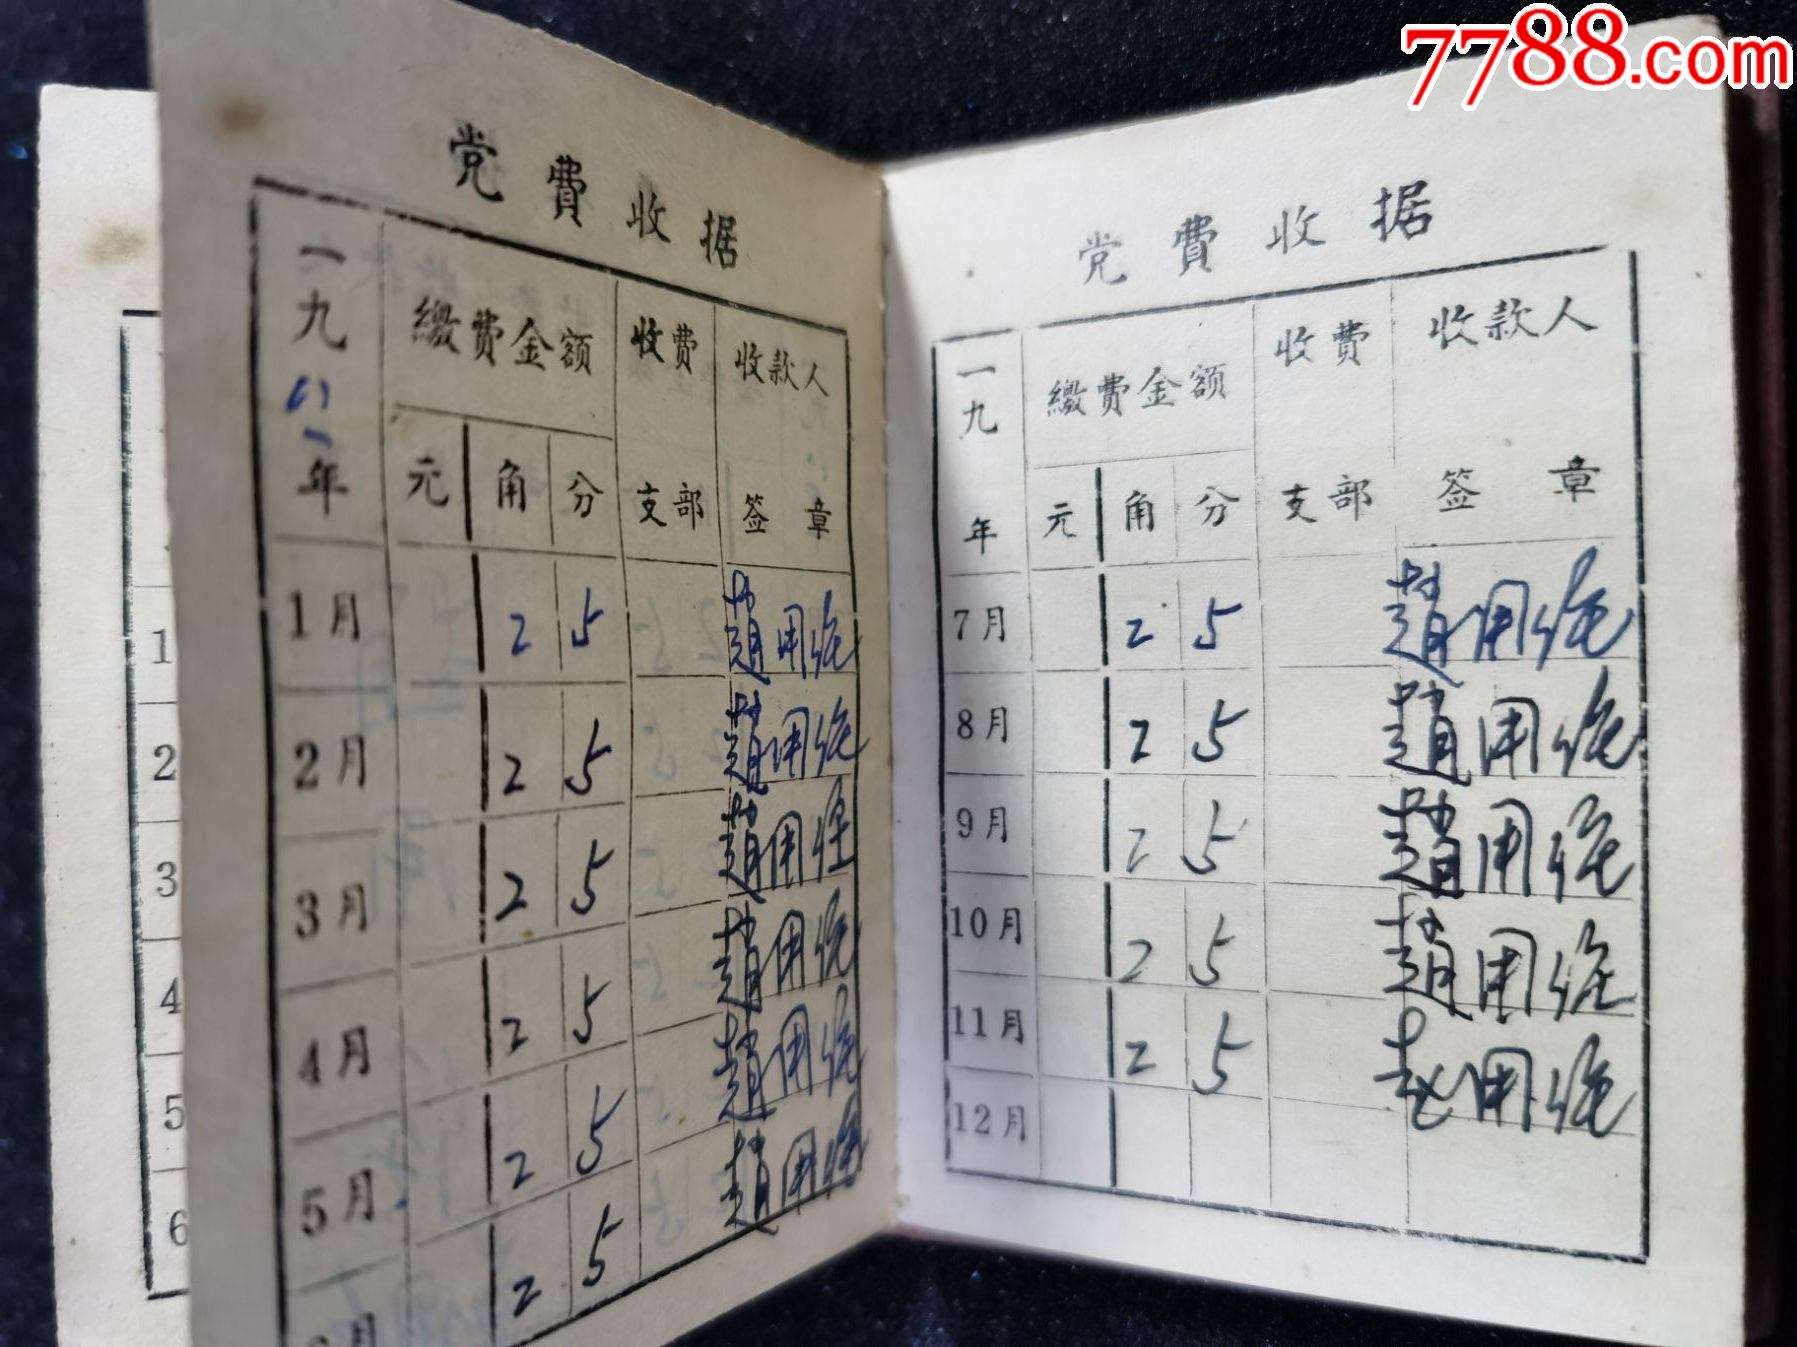 7788.com
党费收据
一九六一年 缴费金额 收费支部 收款人签章
元 角 分
1月 2 5 趙用
2月 2 5 趙用
3月 2 5 趙用
4月 2 5 趙用
5月 2 5 趙用
6月 2 5 趙用
党费收据
一九 年 缴费金额 收费支部 收款人签章
元 角 分
7月 2 5 趙用
8月 2 5 趙用
9月 2 5 趙用
10月 2 5 趙用
11月 2 5 赵用
12月
1
2
3
4
5
6